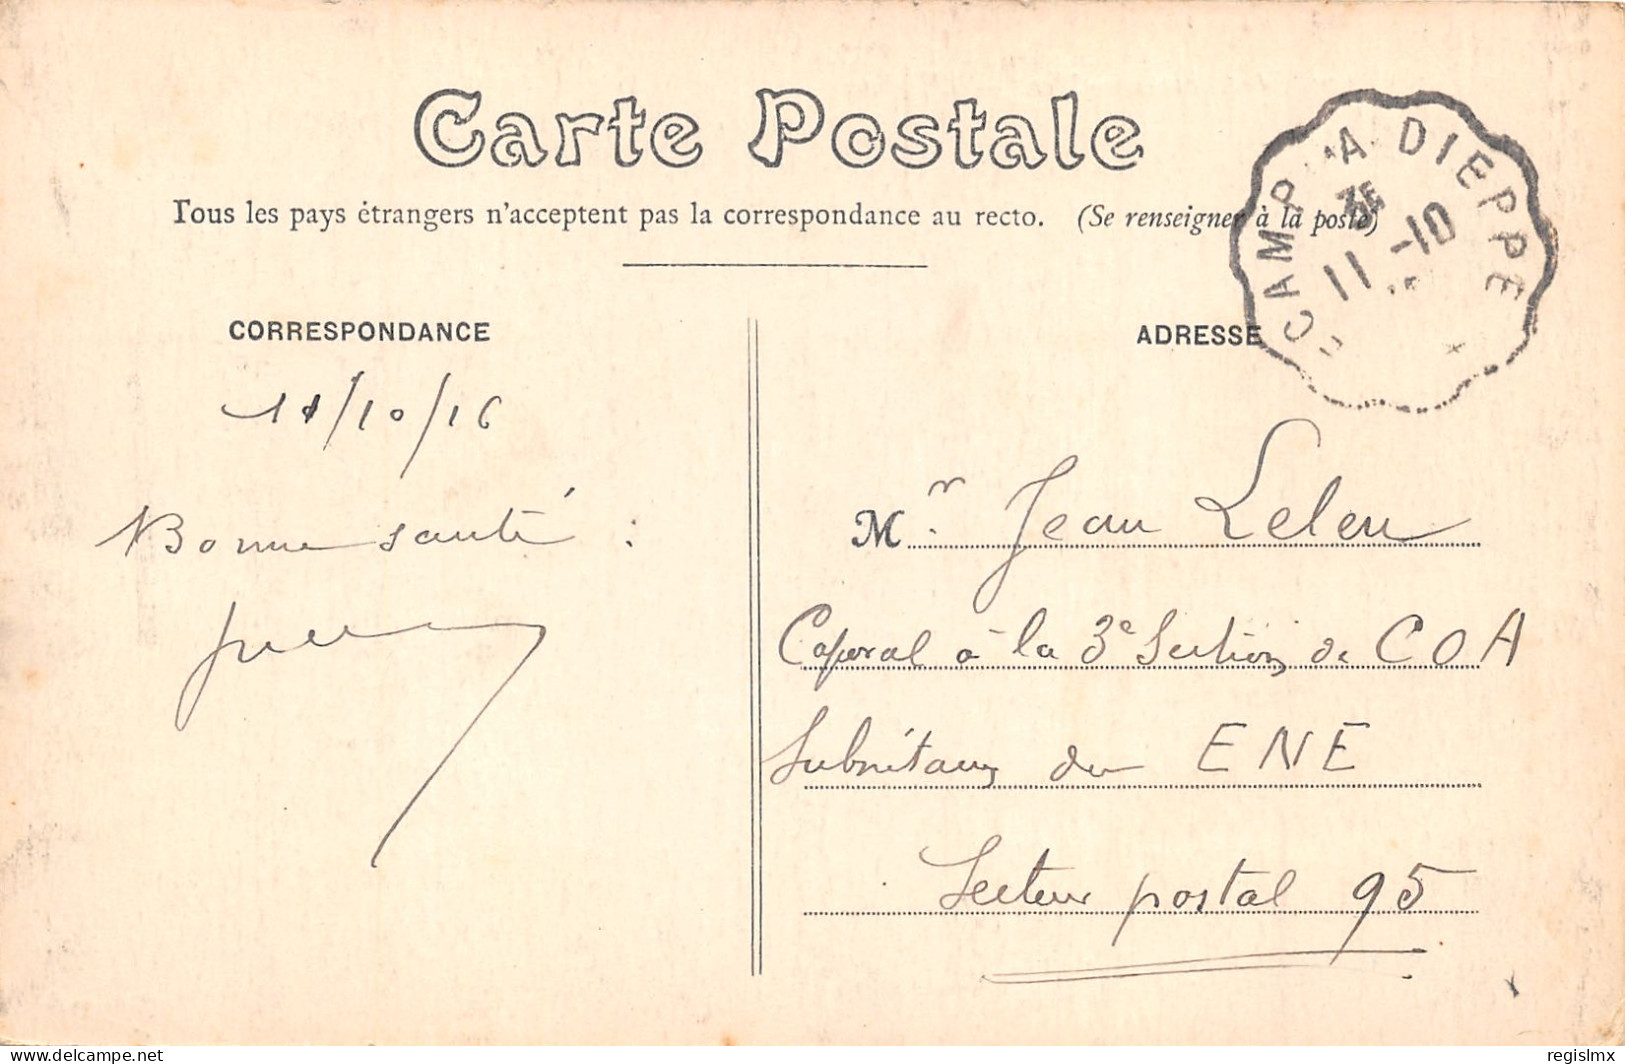 Carte Postale
Tous les pays étrangers n'acceptent pas la correspondance au recto. (Se renseigner à la poste)
CORRESPONDANCE
ADRESSE
ECAMP A DIEPPE
11 -10
11/10/16
Bonne santé :
Mr. Jean Leleu
Caporal à la 3e Section de COA
du ENE
Secteur postal 95
delcampe.net
regislmx